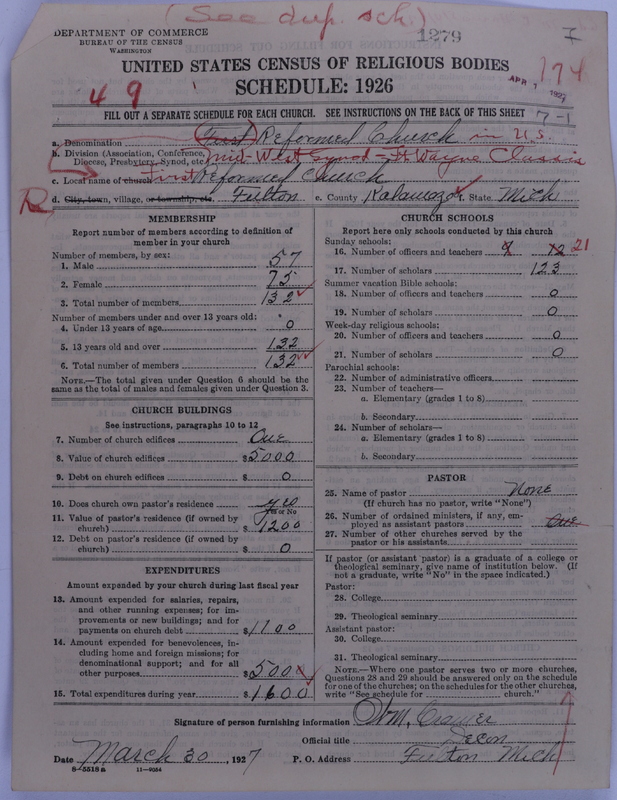 (See dup. sch.)
DEPARTMENT OF COMMERCE
BUREAU OF THE CENSUS
WASHINGTON
1279
I
UNITED STATES CENSUS OF RELIGIOUS BODIES
SCHEDULE: 1926
APR 1 1927
174
49
FILL OUT A SEPARATE SCHEDULE FOR EACH CHURCH. SEE INSTRUCTIONS ON THE BACK OF THIS SHEET
7-1
a. Denomination (First) Reformed Church in U.S.
b. Division (Association, Conference, Diocese, Presbytery, Synod, etc. Mid-West Synod - Ft Wayne Classis
c. Local name of church First Reformed Church
R
d. City, town, village, or township, etc. Fulton e. County Kalamazo State Mich
MEMBERSHIP
Report number of members according to definition of
member in your church
Number of members, by sex:
1. Male 57
2. Female 75
3. Total number of members 132
Number of members under and over 13 years old:
4. Under 13 years of age 0
5. 13 years old and over 132
6. Total number of members 132
NOTE.—The total given under Question 6 should be the
same as the total of males and females given under Question 3.
CHURCH BUILDINGS
See instructions, paragraphs 10 to 12
7. Number of church edifices One
8. Value of church edifices $5000
9. Debt on church edifices $ 0
10. Does church own pastor's residence yes
Yes or No
11. Value of pastor's residence (if owned by
church) $ 1200
12. Debt on pastor's residence (if owned by
church) $ 0
EXPENDITURES
Amount expended by your church during last fiscal year
13. Amount expended for salaries, repairs,
and other running expenses; for im-
provements or new buildings; and for
payments on church debt $1100
14. Amount expended for benevolences, in-
cluding home and foreign missions; for
denominational support; and for all
other purposes $500
15. Total expenditures during year $1600
CHURCH SCHOOLS
Report here only schools conducted by this church
Sunday schools:
16. Number of officers and teachers 9 12 21
17. Number of scholars 123
Summer vacation Bible schools:
18. Number of officers and teachers 0
19. Number of scholars 0
Week-day religious schools:
20. Number of officers and teachers 0
21. Number of scholars 0
Parochial schools:
22. Number of administrative officers
23. Number of teachers—
a. Elementary (grades 1 to 8)
b. Secondary
24. Number of scholars—
a. Elementary (grades 1 to 8)
b. Secondary
PASTOR
25. Name of pastor None
(If church has no pastor, write "None")
26. Number of ordained ministers, if any, em-
ployed as assistant pastors One
27. Number of other churches served by the
pastor or his assistants
If pastor (or assistant pastor) is a graduate of a college or
theological seminary, give name of institution below. (If
not a graduate, write "No" in the space indicated.)
Pastor:
28. College
29. Theological seminary
Assistant pastor:
30. College
31. Theological seminary
NOTE.—Where one pastor serves two or more churches,
Questions 28 and 29 should be answered only on the schedule
for one of the churches; on the schedules for the other churches,
write "See schedule for church."
Signature of person furnishing information Wm. Cramer
Official title Decon
Date March 30, 1927 P. O. Address Fulton Mich
8-5518a 11-9054